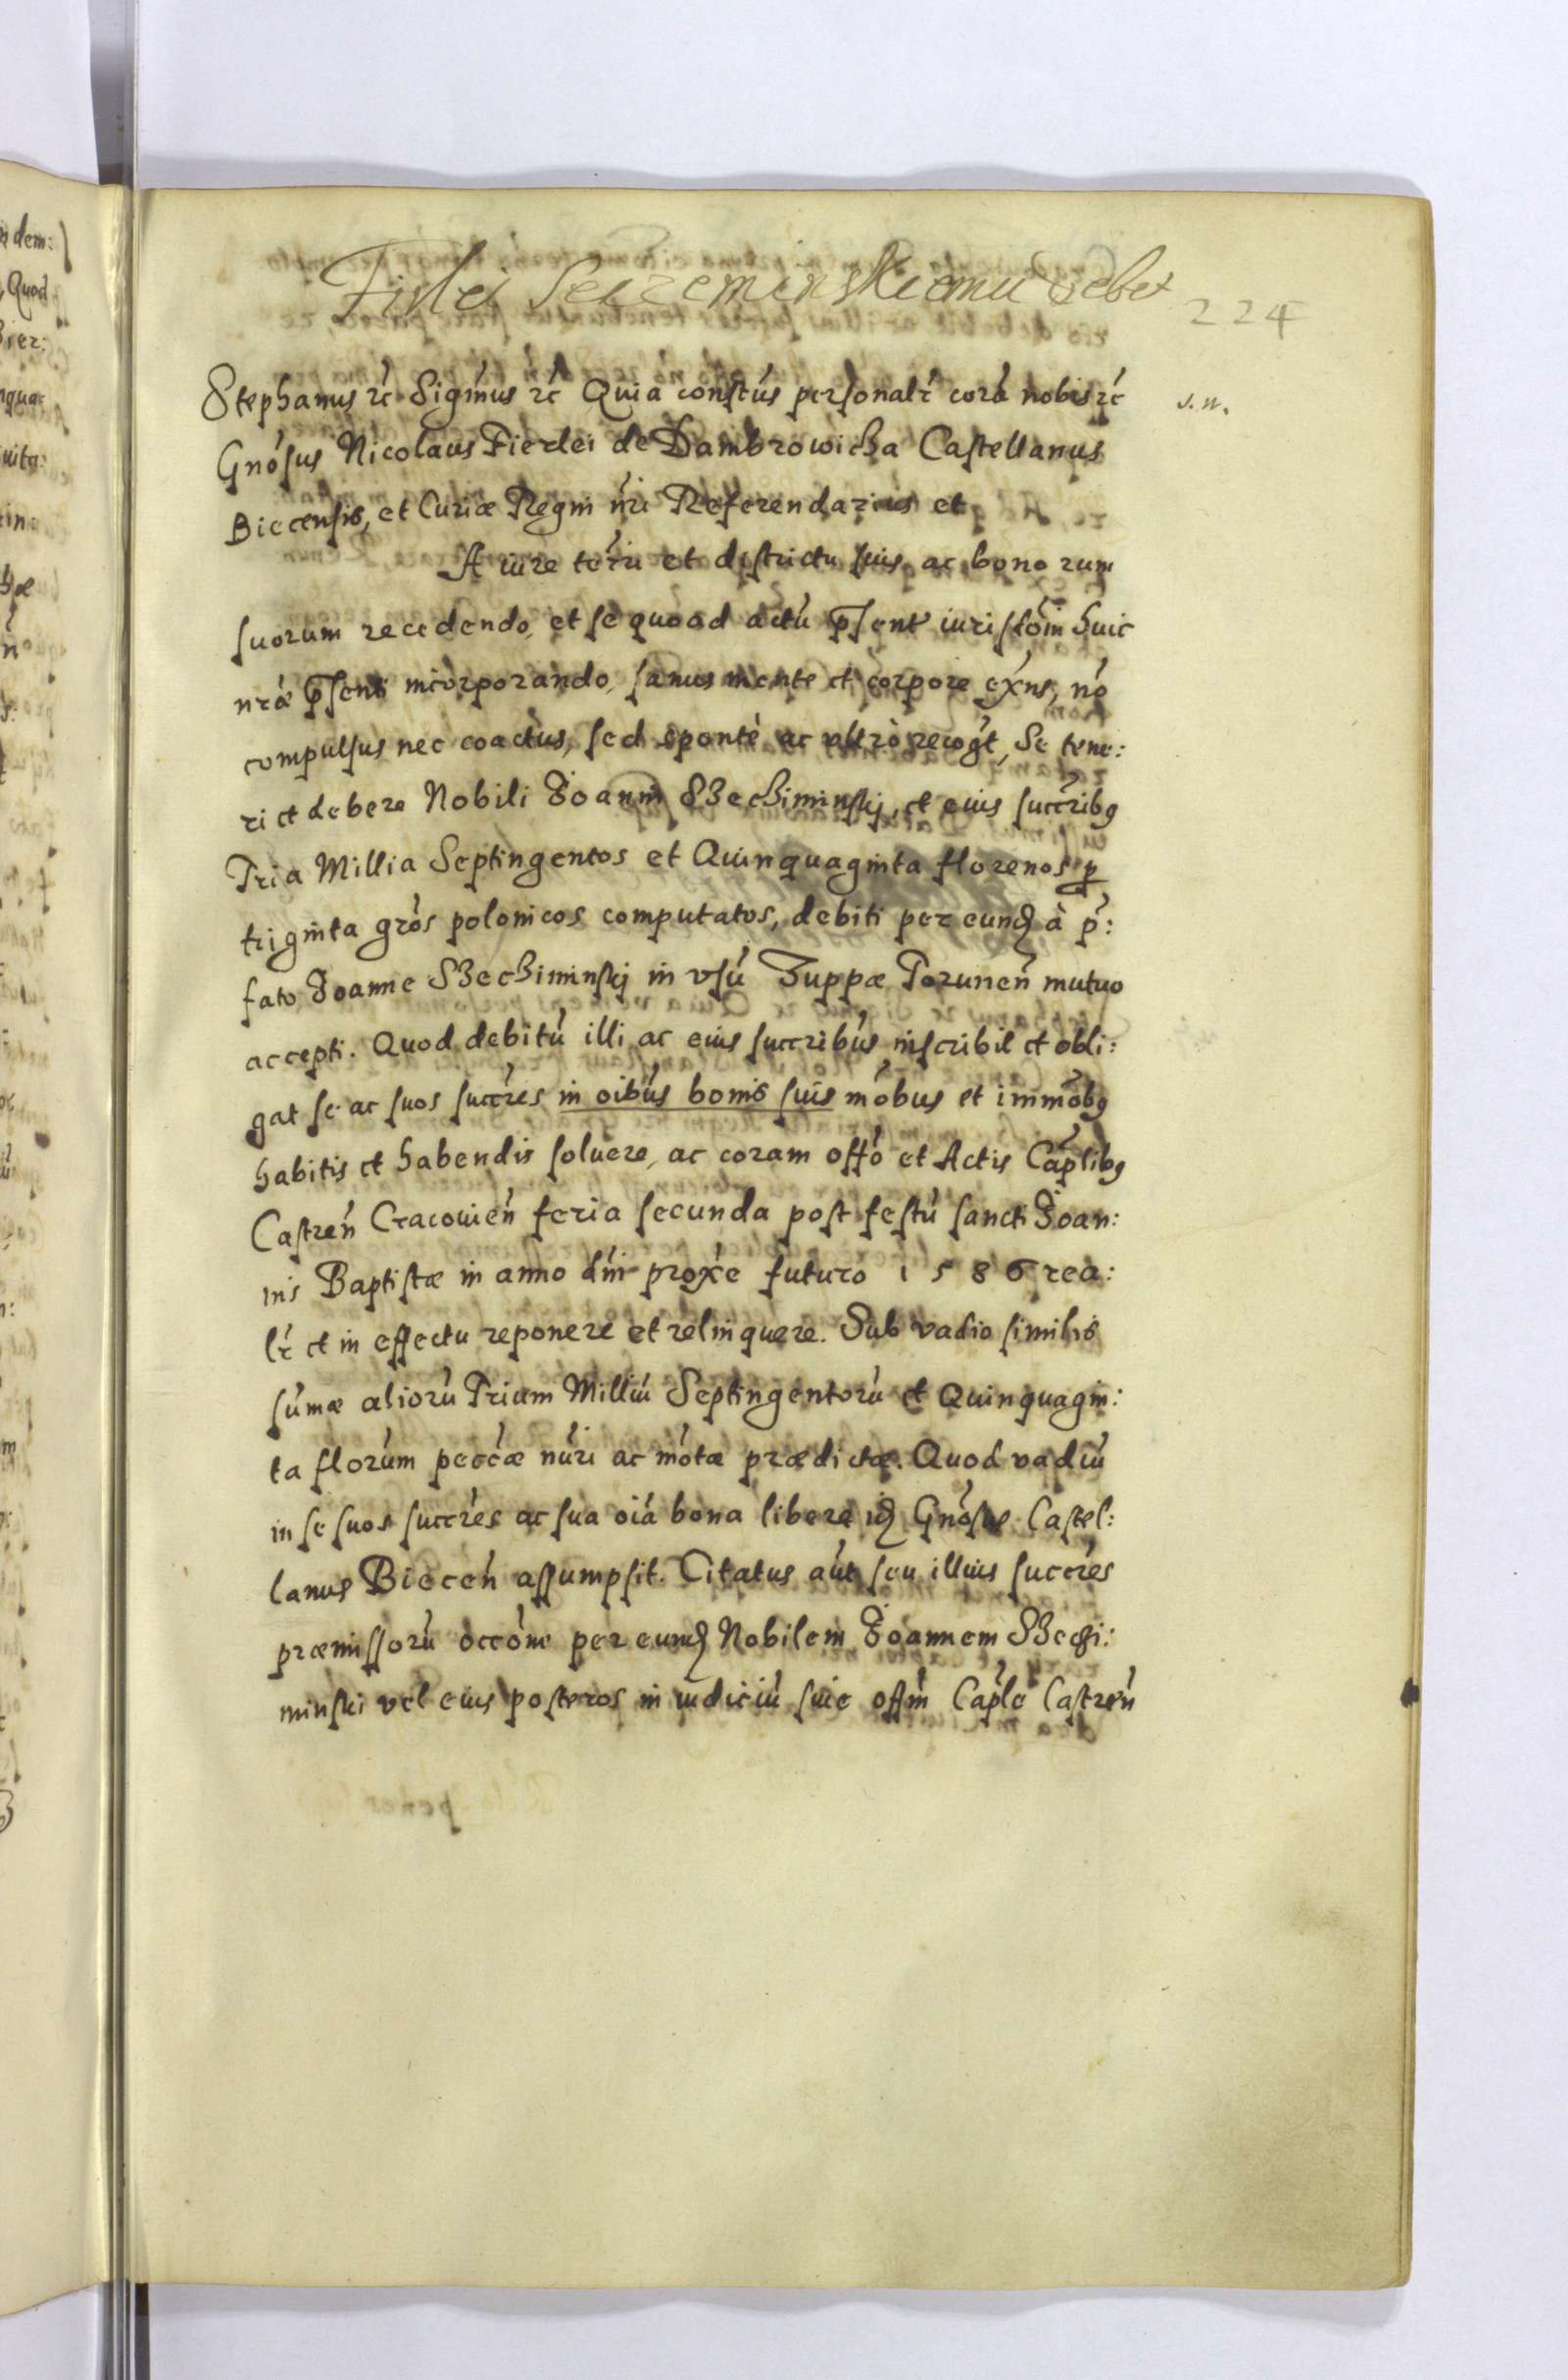 debet
224
Stephanus rć Sigńus rć Quia constús personalr corá nobis rć
s. n.
Gnósus Nicolaus Fierlei de Dambrowicza Castellanus
Biecensis, et Curiæ Regni nri Referendarius et
A iure terri et districtu suis ac bonorum
suorum recedendo, et se quoad actú psent iurisdóni huic
nrae psenti incorporando, sanus mente et corpore exns, nó
compulsus nec coactus, sed sponté ac ultrò recogt, Se tene:
ri et debere Nobili Joanni Szecziminskj, et eius succribq
Tria Millia Septingentos et Quinquaginta florenos p
triginta grós polonicos computatos, debiti per eund à p:
fato Joanne Szecziminskj in vsú Zuppæ Torunen mutuo
accepti. Quod debitú illi ac eius succribus inscribit et obli:
gat se ac suos succres in oibus bonis suis mobus et immobq
habitis et habendis soluere, ac coram offo et Actis Caplibq
Castren Cracouien feria secunda post festú sancti Joan:
nis Baptistæ in anno dni proxe futuro 1586 rea:
lr et in effectu reponere et relinquere. Sub vadio similis
sumæ aliorú Trium Milliú Septingentorú et Quinquagin:
ta florum peccæ nuri ac motæ prædictæ. Quod vadiú
in se suos succres ac sua oia bona libere id Gnosus Castel:
lanus Biecen assumpsit. Citatus aut seu illius succres
præmissorú occóne per eund Nobilem Joannem Szeczi:
minski vel eius posteros in iudiciú siue offm Caple Castren